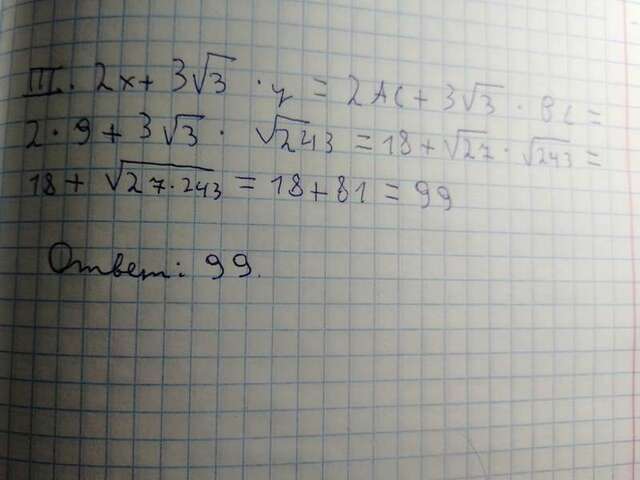 III. 2x + 3√3 · y = 2AC + 3√3 · BC =
2 · 9 + 3√3 · √243 = 18 + √27 · √243 =
18 + √27·243 = 18 + 81 = 99
Ответ: 99.